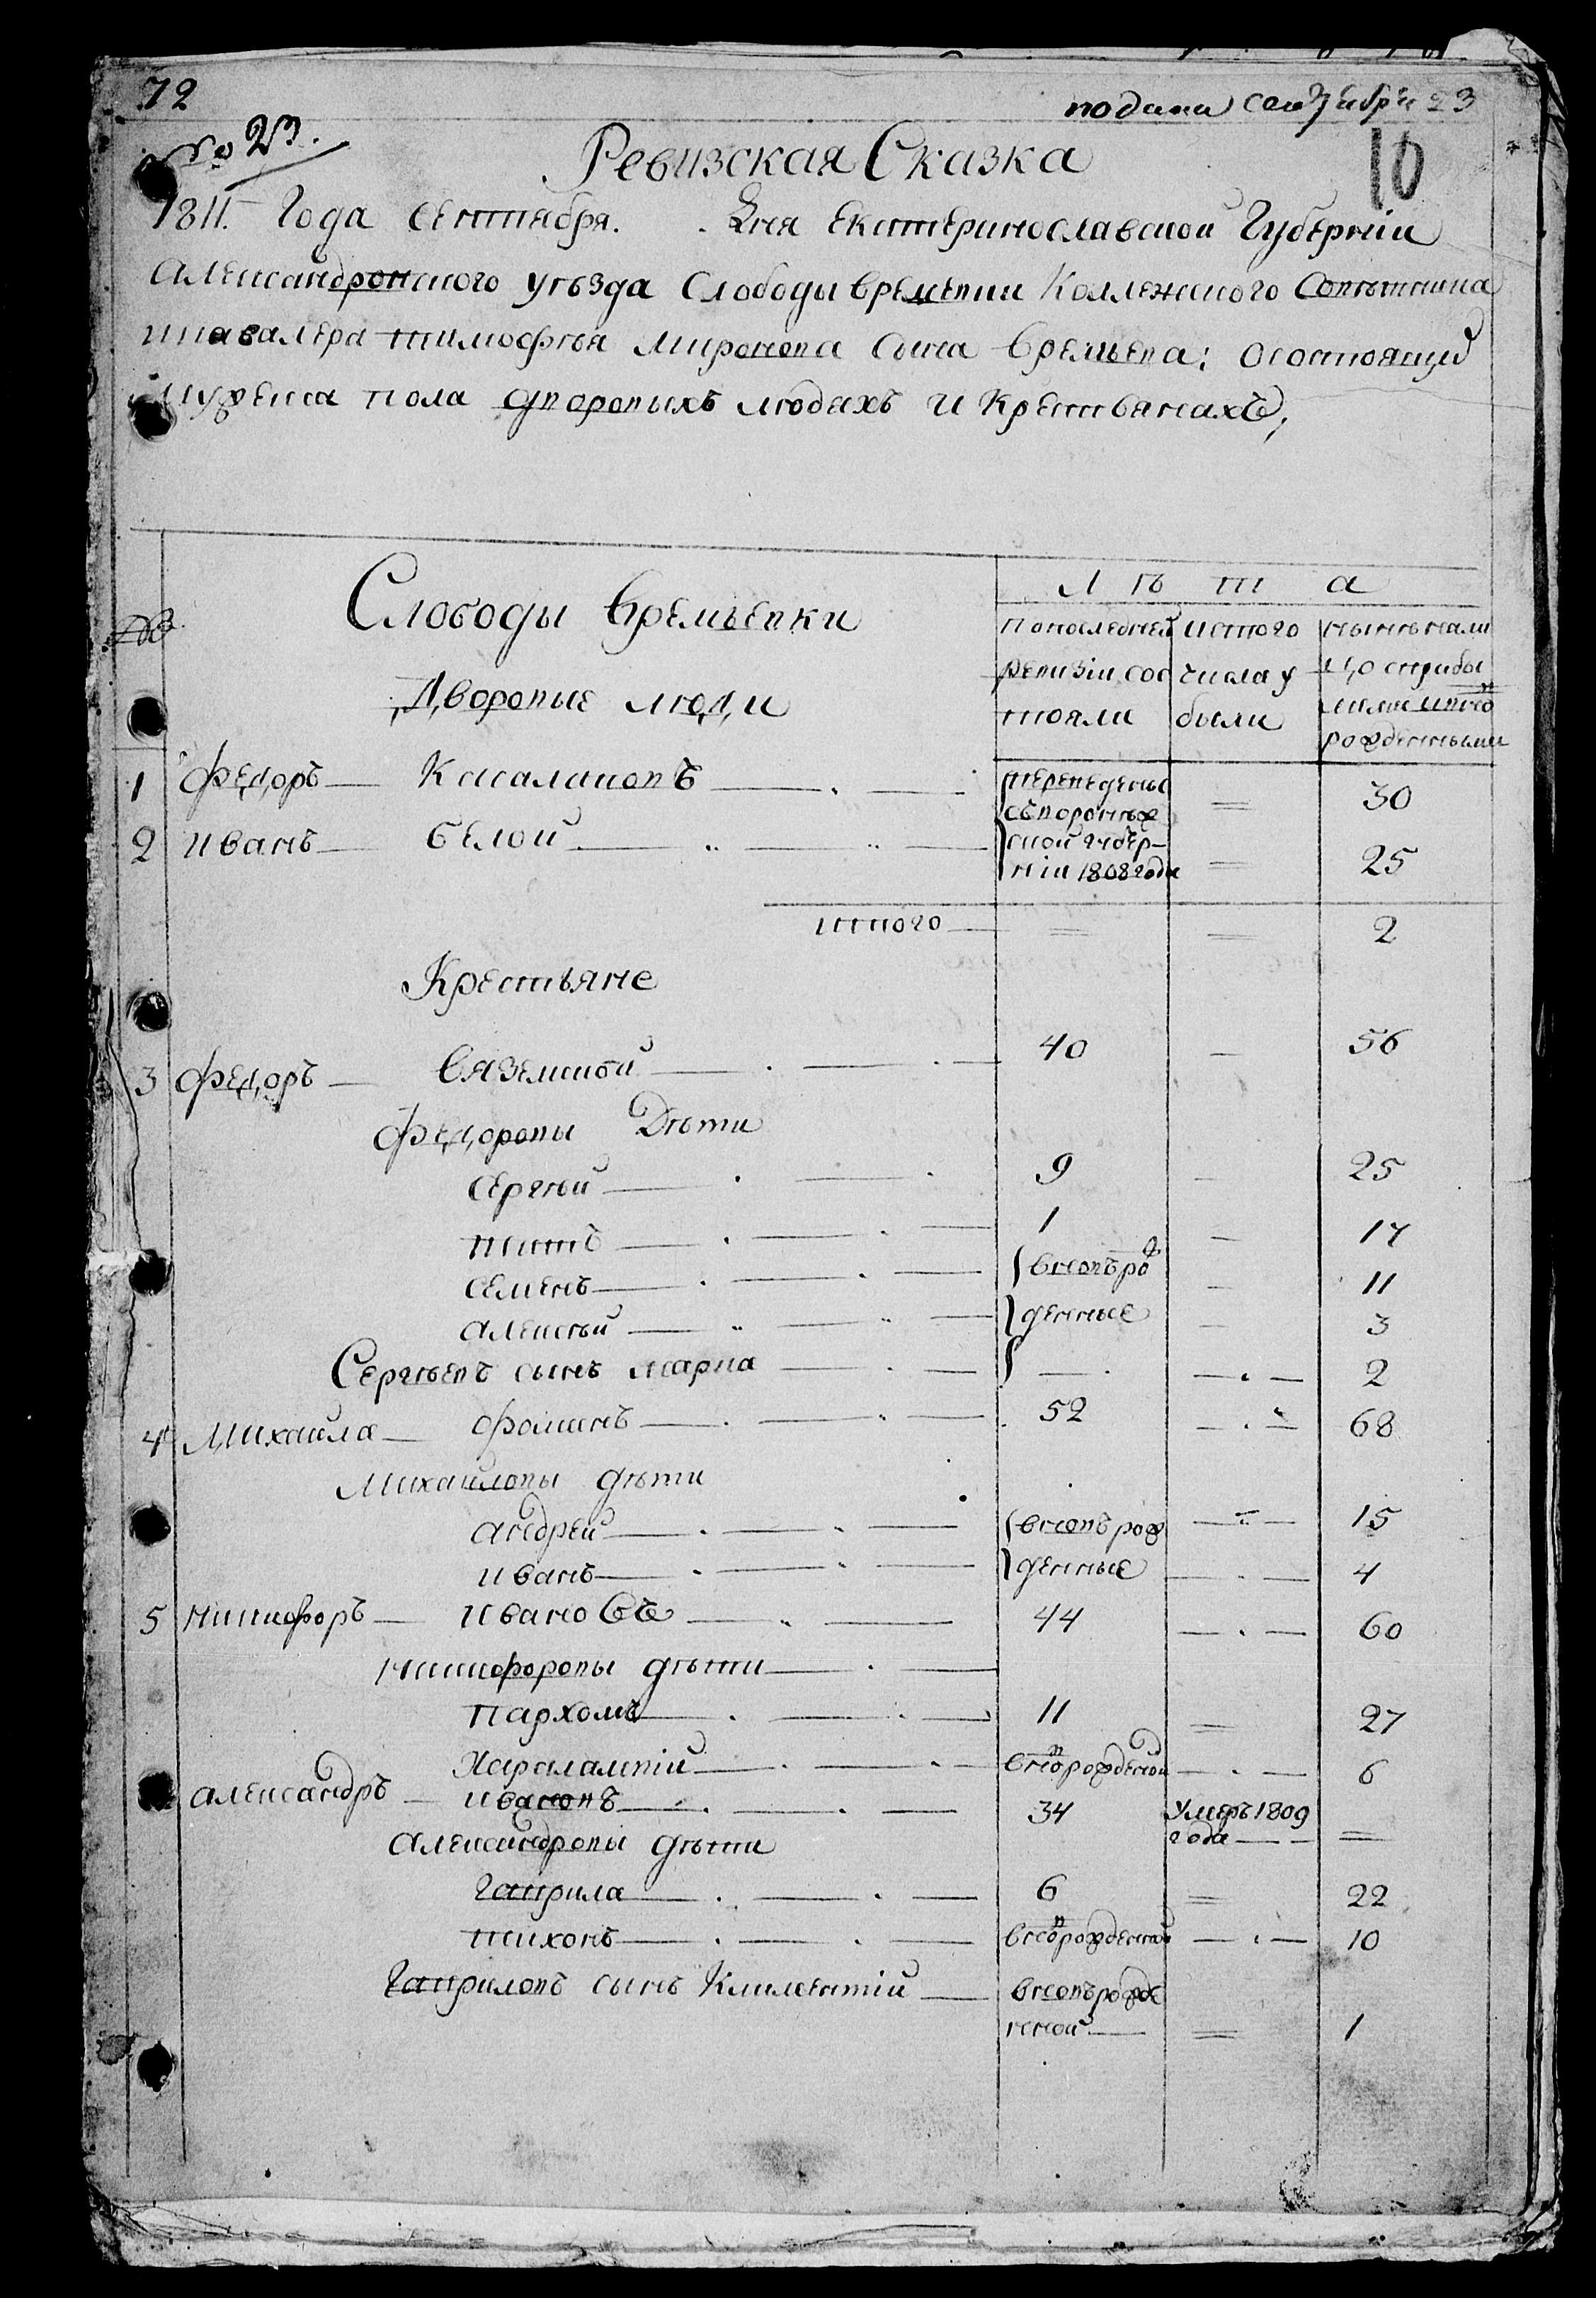 72
подана сентября 23
№ 23.
10
Ревизская Сказка
1811. Года Сентября. Дня Екатеринославской Губерніи
Александровского уѣзда Слободы Времевки Коллежского Советника
и кавалера тимофѣя Миронова сына Времьева: о состоящих
мужеска пола дворовыхъ людяхъ и Крестьянахъ,
№
Слободы Времьевки
Лѣта
Дворовые люди
попоследней ревизіи состояли
изтого числа убыли
нынѣ налицо сприбылыми ивновь рожденными
1 Федоръ — Касалаповъ — переведены 30
2 иванъ — белой — своронежской губерніи 1808 года 25
итого 2
Крестьяне
3 Федоръ — Вяземской — 40 — 56
Федоровы Дѣти
Сергѣй — 9 — 25
титъ — 1 — 17
Семенъ — вновь рож 11
Алексѣй — денные 3
Сергѣевъ сынъ марка — 2
4 Михаила — Фоминъ — 52 — 68
Михаиловы дѣти
андрей — вновь рож 15
иванъ — денные 4
5 Никифоръ — ивановъ — 44 — 60
Никифоровы дѣти
Пархомъ — 11 = 27
Харалампій — вновьрожденой — 6
Александръ — ивановъ — 34 умеръ 1809 года — =
Александровы дѣти
Гаврила — 6 = 22
тихонъ — вновьрожденной — 10
Гавриловъ сынъ Климентій — вновьрожде
нной — = 1